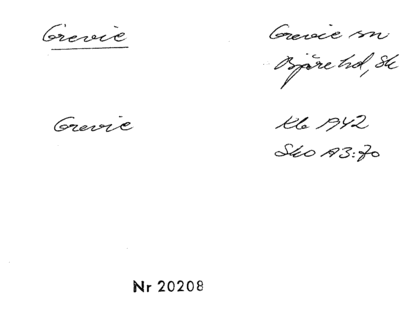 Grevie
Grevie sn
Bjäre hd, Sk
Grevie
Kb 1942
Sko A3:70
Nr 20208